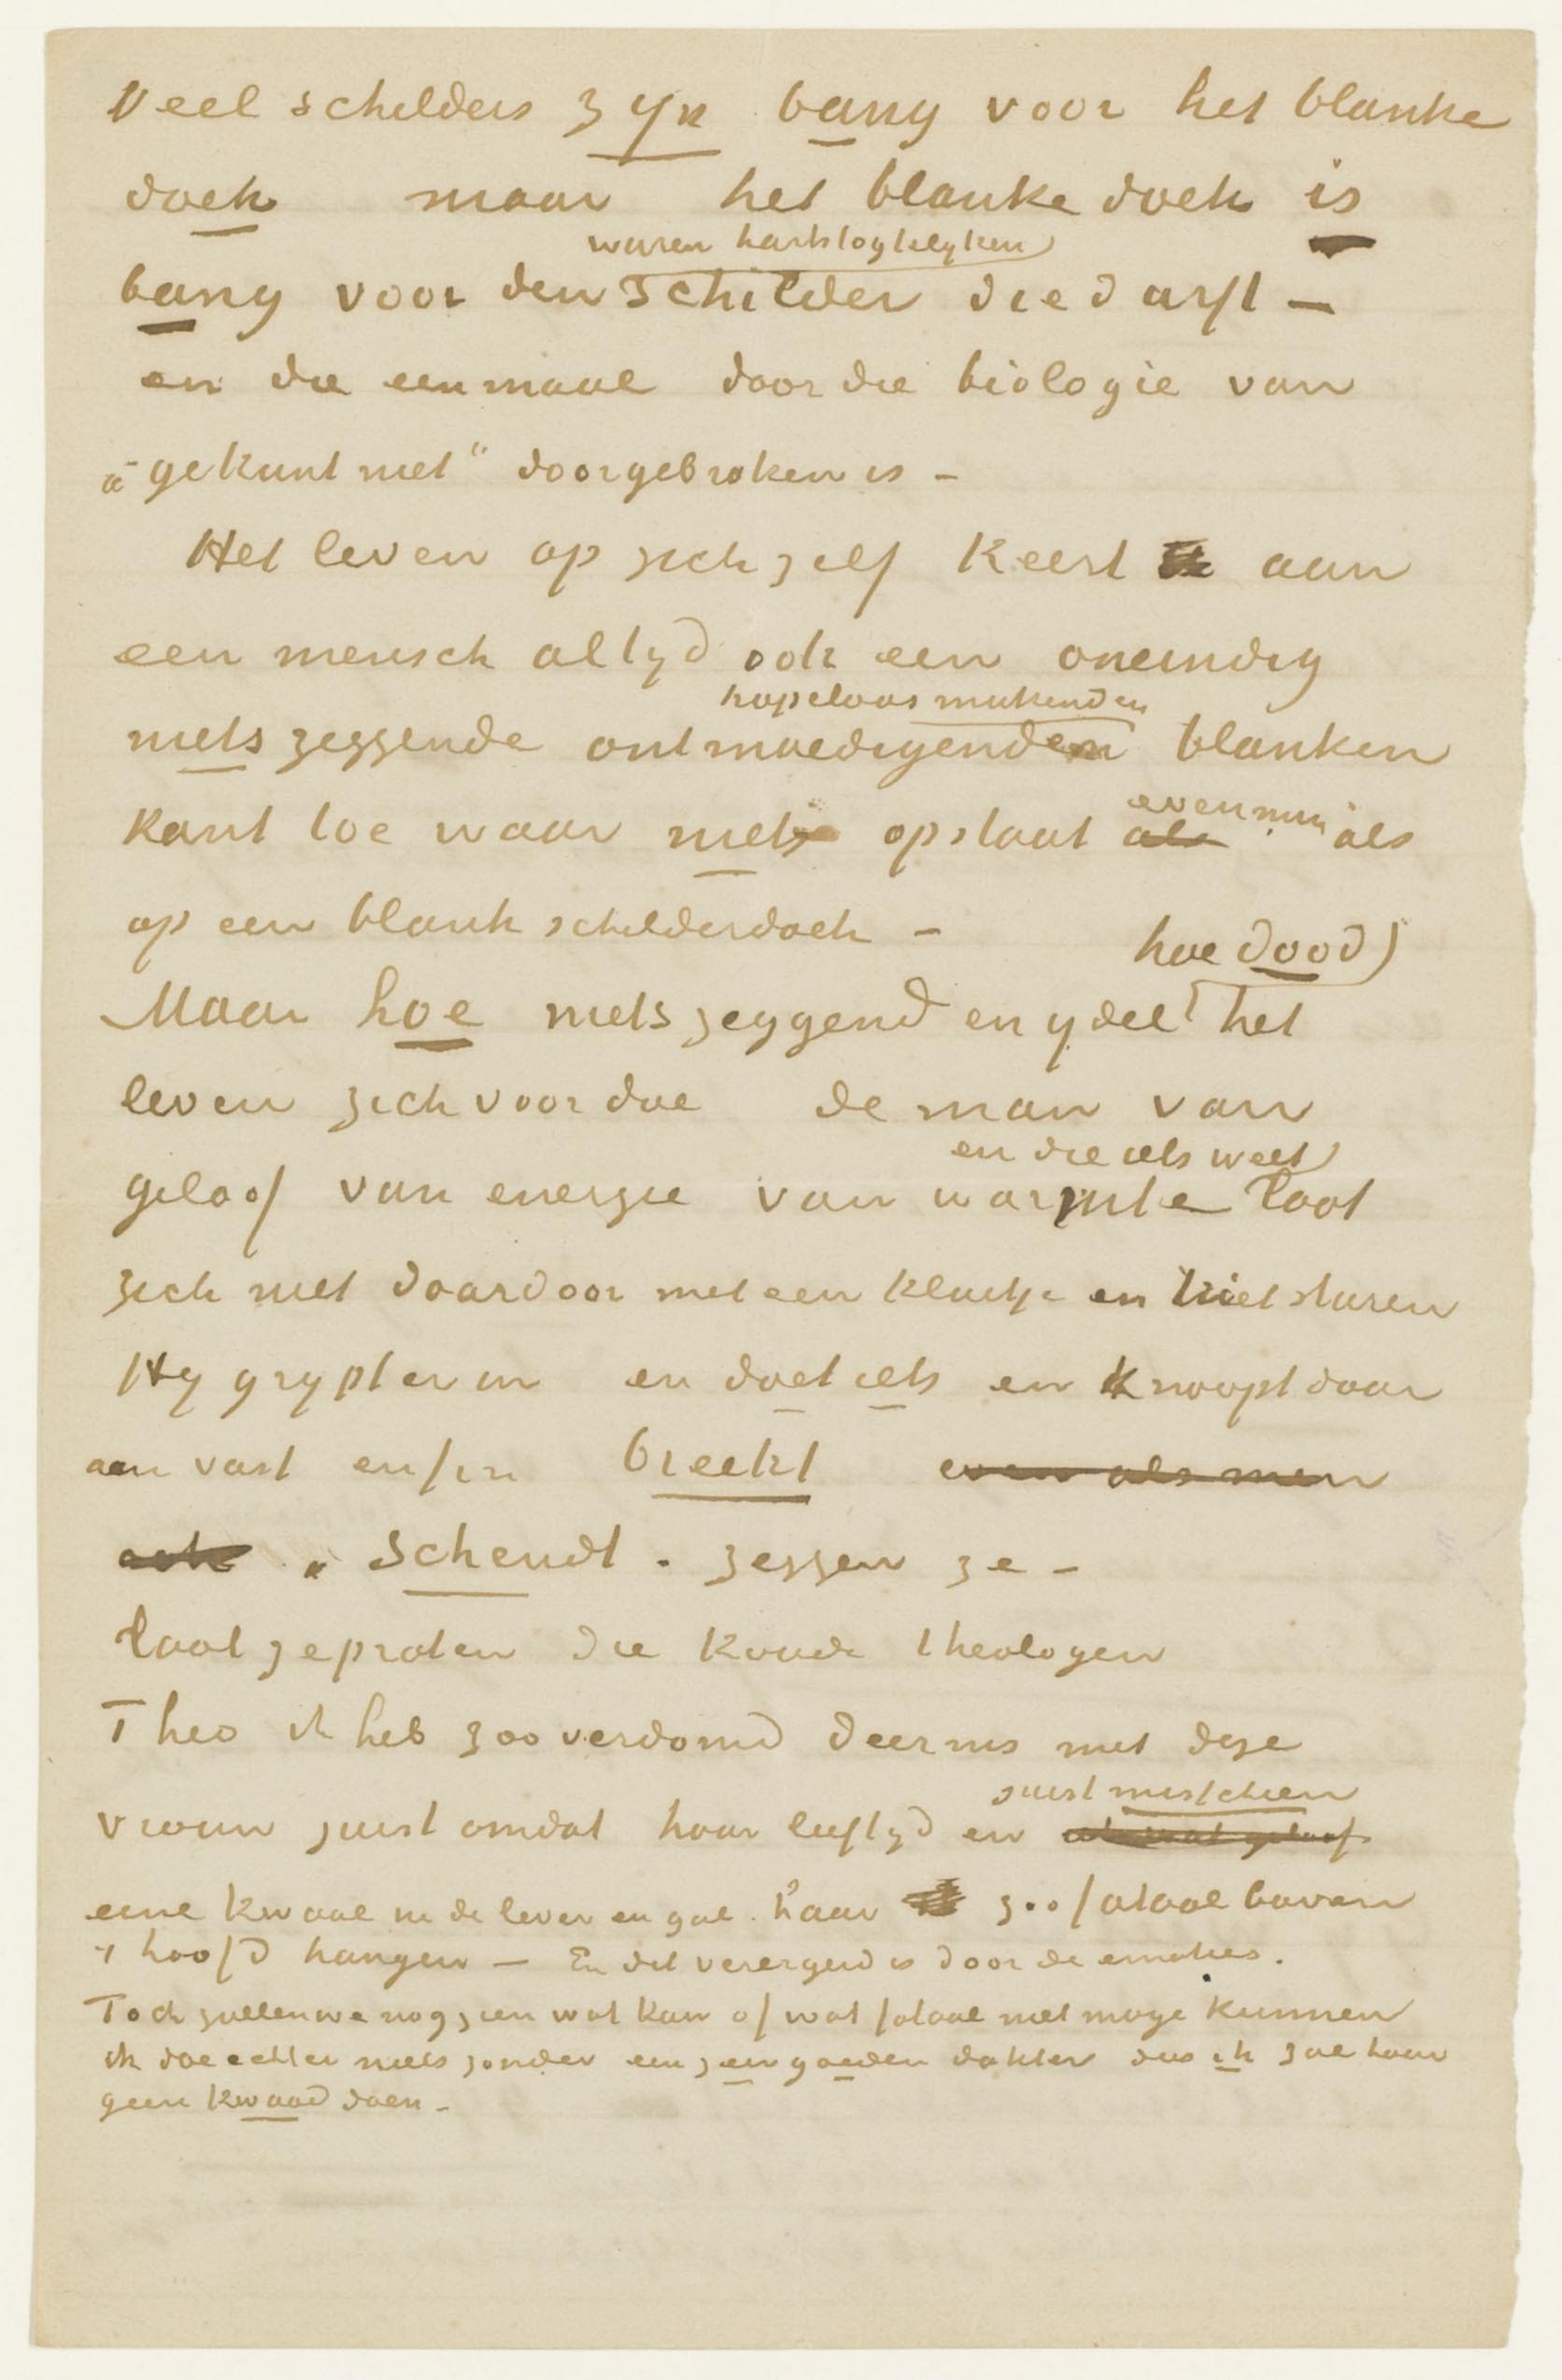 Veel schilders zyn bang voor het blanke
doek maar het blanke doek is
waren hartstogtelyken
bang voor den schilder die durft —
en die eenmaal door die biologie van
„gekunt niet" doorgebroken is —
Het leven op zich zelf keert aan
een mensch altyd ook een oneindig
hopeloos makenden
niets zeggende ontmoedigenden blanken
evenmin
kant toe waar niets op staat als als
op een blank schilderdoek —
hoe dood
Maar hoe niets zeggend en ydel het
leven zich voordoe de man van
en die iets weet
geloof van energie van warmte laat
zich niet daardoor met een kluitje en riet sturen
Hy grypt er in en doet iets en knoopt daar
aan vast enfin breekt even als men
ook „schendt" zeggen ze —
laat ze praten die koude theologen
Theo ik heb zoo verdomd deernis met deze
juist misschien
vrouw juist omdat haar leeftyd en
eene kwaal in de lever en gal haar zoo fataal boven
't hoofd hangen — En dit verergerd is door de emoties.
Toch zullen we nog zien wat kan of wat fataal niet moge kunnen
ik doe echter niets zonder een zeer goeden dokter dus ik zal haar
geen kwaad doen —